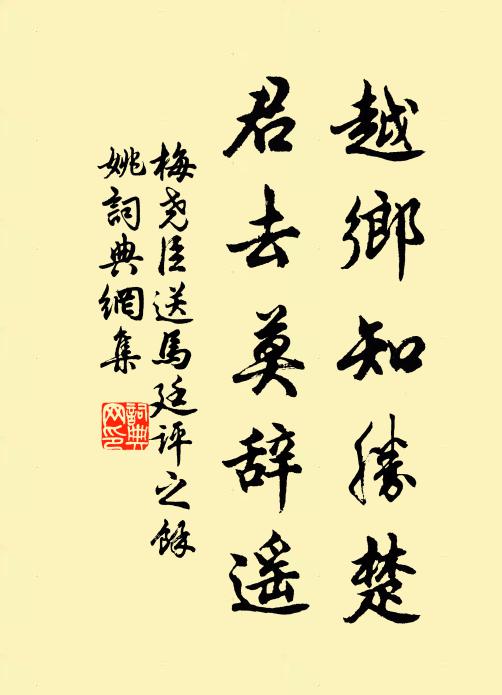 越鄉知勝楚
君去莫辞遥
梅尧臣送馬廷评之餘
姚詞典網集
詞典
网印